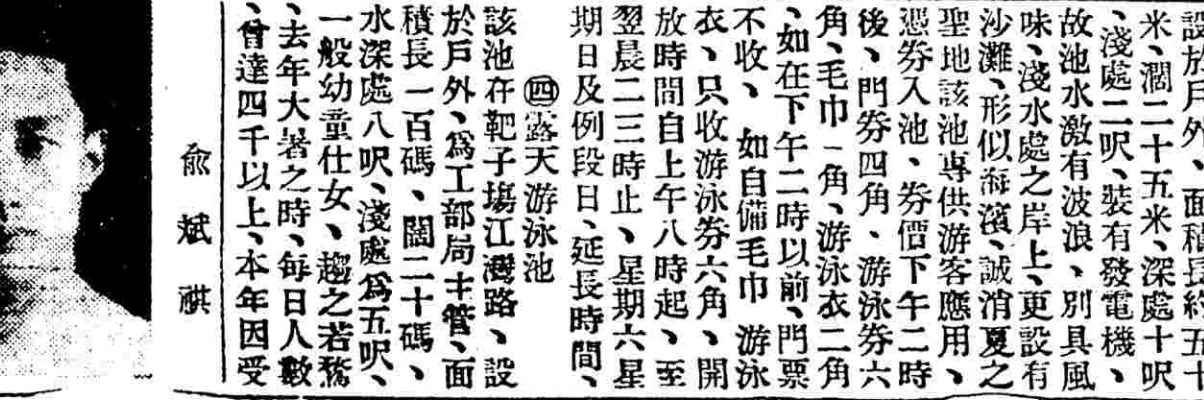 設於戶外、面積長約五十
米、濶二十五米、深處十呎
、淺處二呎、裝有發電機、
故池水激有波浪、別具風
味、淺水處之岸上、更設有
沙灘、形似海濱、誠消夏之
聖地該池專供游客應用、
憑券入池、券價下午二時
後、門券四角、游泳券六
角、毛巾一角、游泳衣二角
、如在下午二時以前、門票
不收、如自備毛巾 游泳
衣、只收游泳券六角、開
放時間自上午八時起、至
翌晨二三時止、星期六星
期日及例段日、延長時間、
㊃露天游泳池
該池在靶子塲江灣路、設
於戶外、爲工部局主管、面
積長一百碼、闊二十碼、
水深處八呎、淺處爲五呎、
一般幼童仕女、趨之若鶩
、去年大暑之時、每日人數
、曾達四千以上、本年因受
俞斌祺